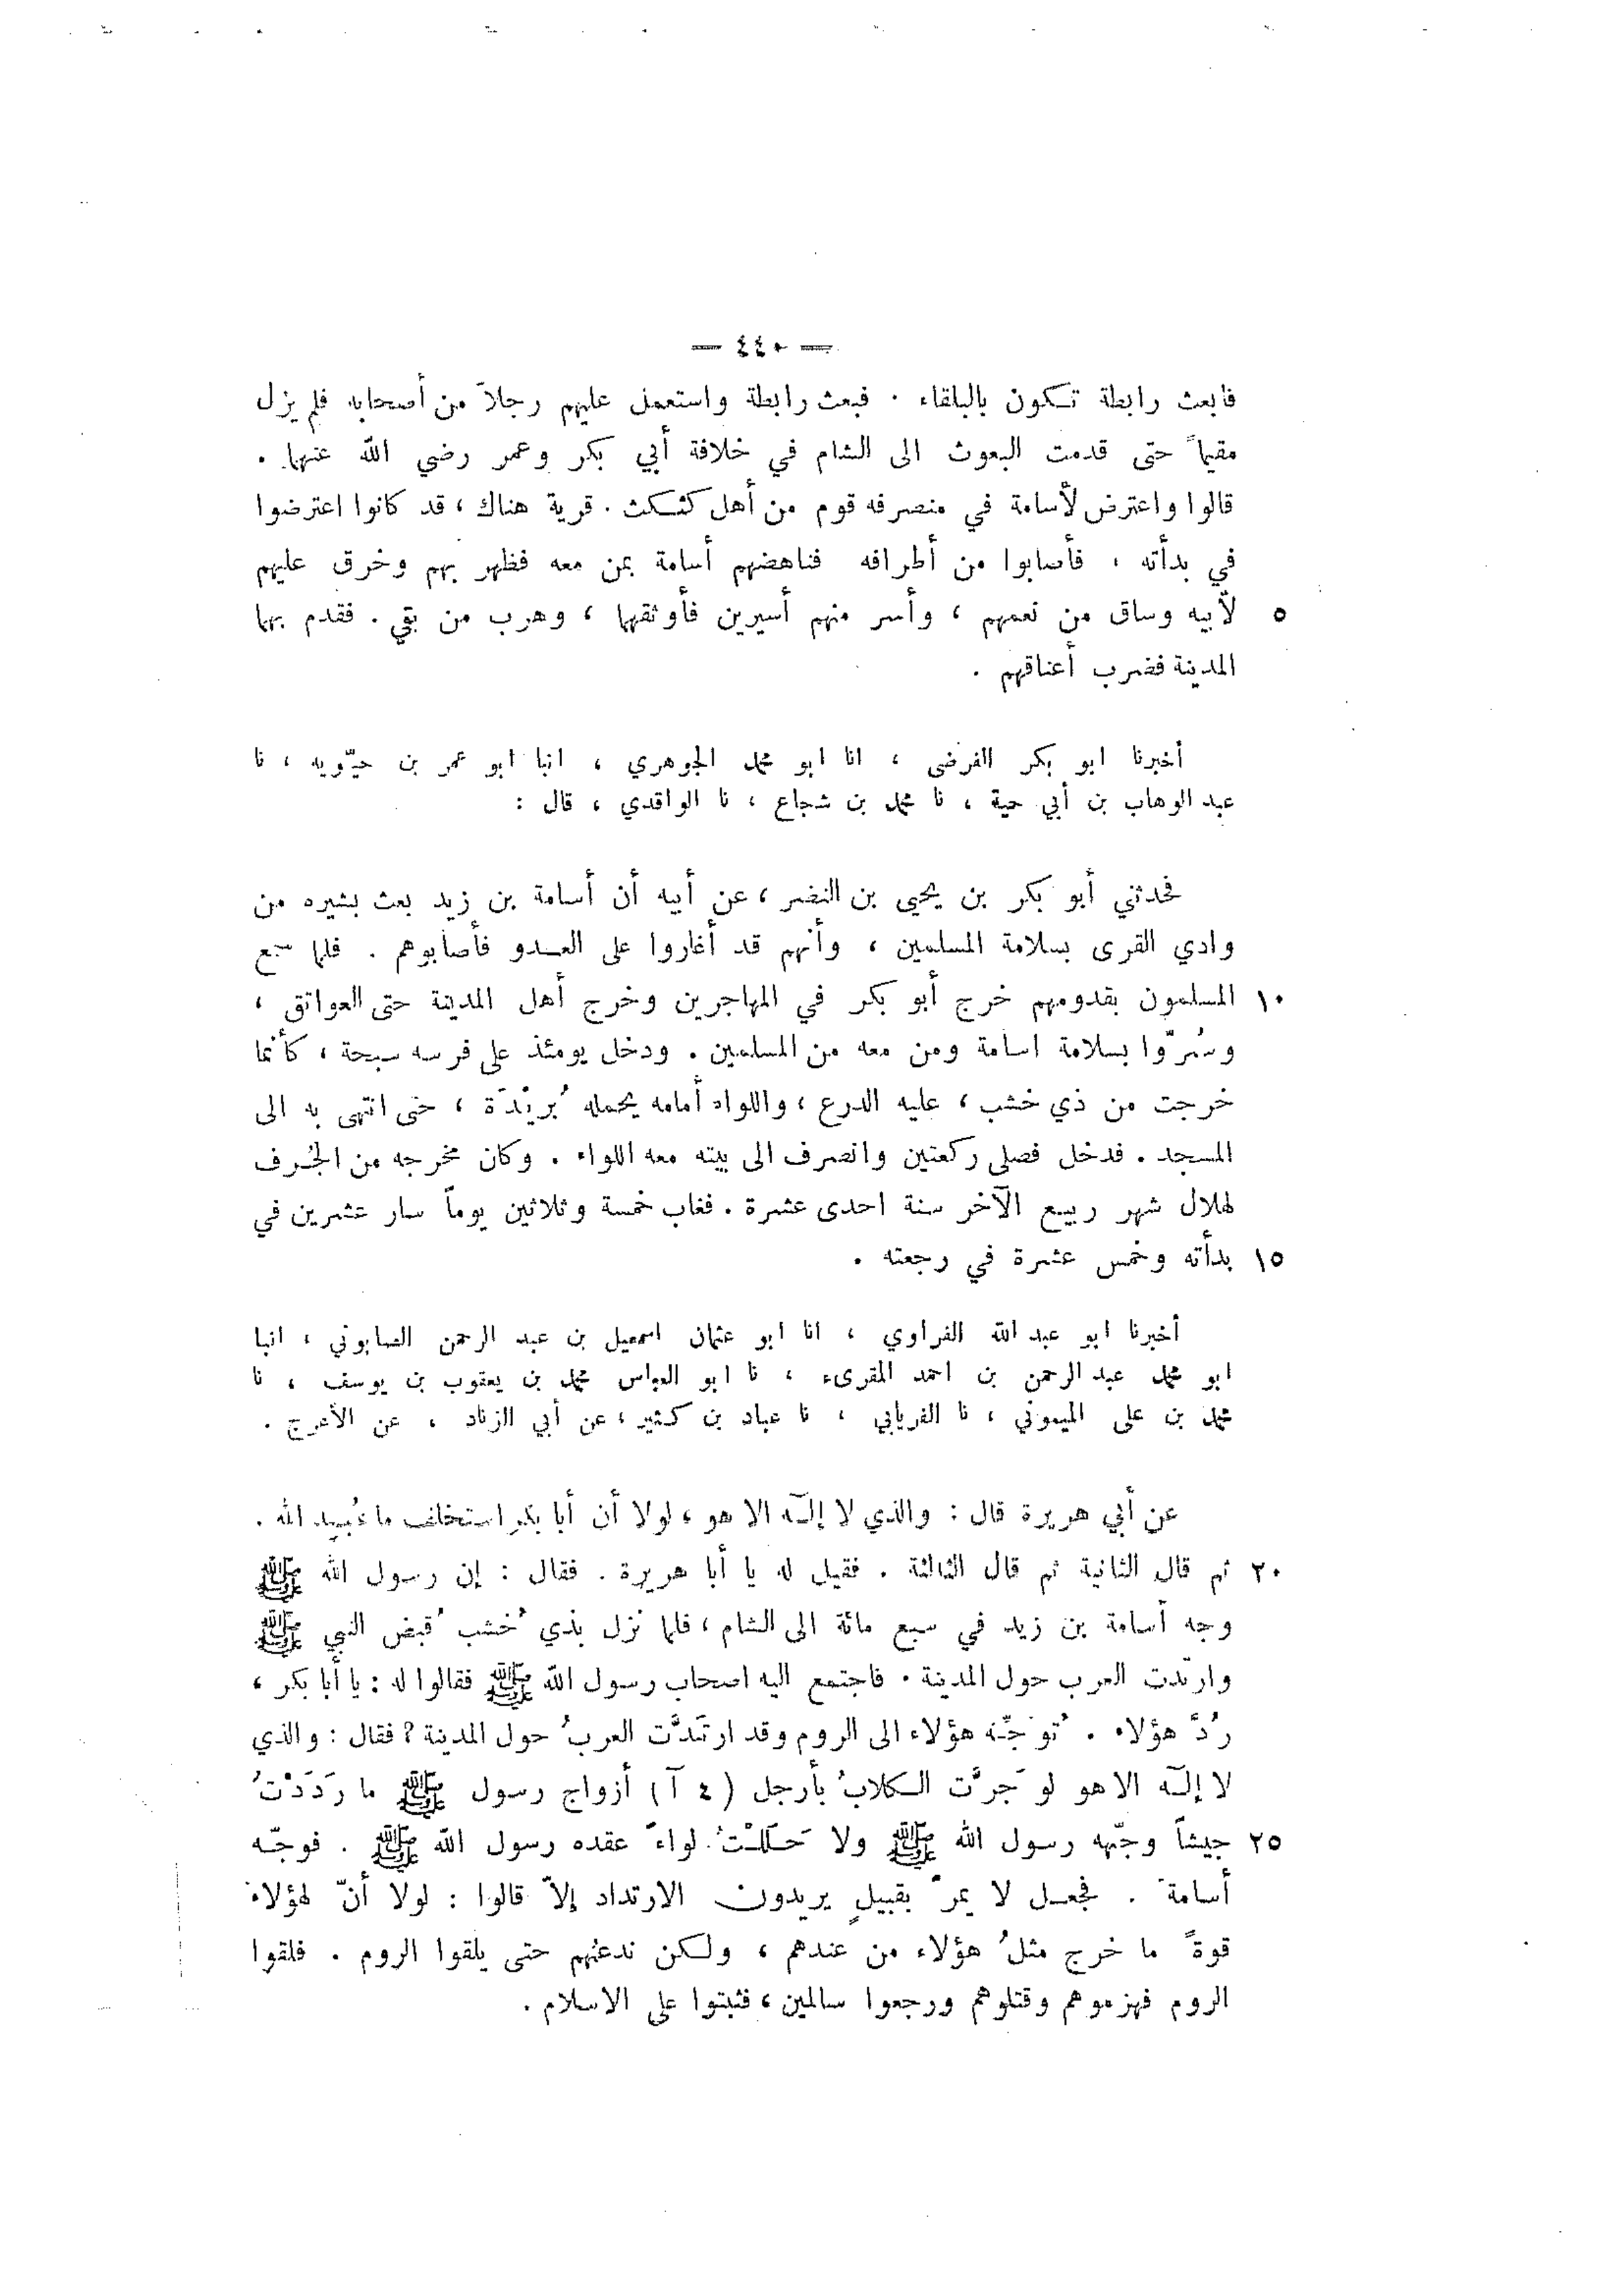 — ٤٤٠ —
فابعث رابطة تكون بالبلقاء . فبعث رابطة واستعمل عليهم رجلاً من أصحابه فلم يزل
مقيماً حتى قدمت البعوث الى الشام في خلافة أبي بكر وعمر رضي الله عنهما .
قالوا واعترض لأسامة في منصرفه قوم من أهل كثكث . قرية هناك ، قد كانوا اعترضوا
في بدأته ، فأصابوا من أطرافه فناهضهم أسامة بمن معه فظهر بهم وخرق عليهم
٥ لأبيه وساق من نعمهم ، وأسر منهم أسيرين فأوثقهما ، وهرب من بقي . فقدم بهما
المدينة فضرب أعناقهم .
أخبرنا ابو بكر الفرضي ، انا ابو محمد الجوهري ، انبا ابو عمر بن حيّويه ، نا
عبد الوهاب بن أبي حية ، نا محمد بن شجاع ، نا الواقدي ، قال :
فحدثني أبو بكر بن يحيى بن النضر ، عن أبيه أن أسامة بن زيد بعث بشيره من
وادي القرى بسلامة المسلمين ، وأنهم قد أغاروا على العدو فأصابوهم . فلما سمع
١٠ المسلمون بقدومهم خرج أبو بكر في المهاجرين وخرج أهل المدينة حتى العواتق ،
وسُرّوا بسلامة اسامة ومن معه من المسلمين . ودخل يومئذ على فرسه سبحة ، كأنما
خرجت من ذي خشب ، عليه الدرع ، واللواء أمامه يحمله بُريْدَة ، حتى انتهى به الى
المسجد . فدخل فصلى ركعتين وانصرف الى بيته معه اللواء . وكان مخرجه من الجُرف
لهلال شهر ربيع الآخر سنة احدى عشرة . فغاب خمسة وثلاثين يوماً سار عشرين في
١٥ بدأته وخمس عشرة في رجعته .
أخبرنا ابو عبد الله الفراوي ، انا ابو عثمان اسمعيل بن عبد الرحمن الصابوني ، انبا
ابو محمد عبد الرحمن بن احمد المقرىء ، نا ابو العباس محمد بن يعقوب بن يوسف ، نا
محمد بن على الميموني ، نا الفريابي ، نا عباد بن كثير ، عن أبي الزناد ، عن الأعرج .
عن أبي هريرة قال : والذي لا إلـٓه الا هو ، لولا أن أبا بكر استخلف ما عُبِد الله .
٢٠ ثم قال الثانية ثم قال الثالثة . فقيل له يا أبا هريرة . فقال : إن رسول الله ﷺ
وجه أسامة بن زيد في سبع مائة الى الشام ، فلما نزل بذي خُشب قُبض النبي ﷺ
وارتدت العرب حول المدينة . فاجتمع اليه اصحاب رسول الله ﷺ فقالوا له : يا أبا بكر ،
رُدَّ هؤلاء . تُوَجِّه هؤلاء الى الروم وقد ارتَدَّت العربُ حول المدينة ? فقال : والذي
لا إلـٓه الا هو لو جَرَّت الكلابُ بأرجل ( ٤ آ ) أزواج رسول ﷺ ما رَدَدْتُ
٢٥ جيشاً وجّهه رسول الله ﷺ ولا حَلَلْتُ لواءً عقده رسول الله ﷺ . فوجّه
أسامةَ . فجعل لا يمرّ بقبيلٍ يريدون الارتداد إلاّ قالوا : لولا أنّ لهؤلاء
قوةً ما خرج مثلُ هؤلاء من عندهم ، ولكن ندعهم حتى يلقوا الروم . فلقوا
الروم فهزموهم وقتلوهم ورجعوا سالمين ، فثبتوا على الاسلام .